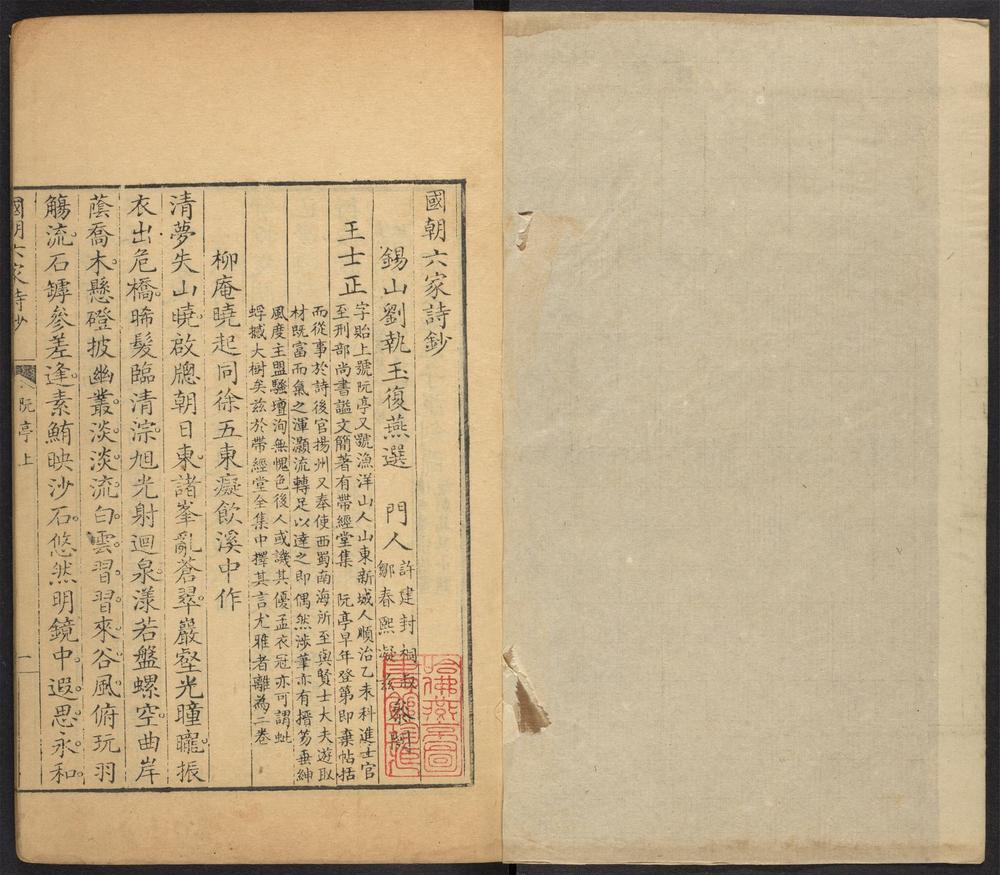 國朝六家詩鈔
錫山劉執玉復燕選 門人 許建封桐叔 鄒春熙凝茲 參閱
王士正 字貽上號阮亭又號漁洋山人山東新城人順治乙未科進士官
至刑部尚書諡文簡著有帶經堂集 阮亭早年登第即棄帖括
而從事於詩後官揚州又奉使西蜀南海所至與賢士大夫遊取
材既富而氣之渾灝流轉足以達之即偶然涉筆亦有搢笏垂紳
風度主盟騷壇洵無愧色後人或譏其優孟衣冠亦可謂蚍
蜉撼大樹矣茲於帶經堂全集中擇其言尤雅者離為二卷
柳庵曉起同徐五東癡飲溪中作
清夢失山曉啟牕朝日東諸峯亂蒼翠巖壑光曈曨振
衣出危橋晞髮臨清淙旭光射迴泉漾若盤螺空曲岸
蔭喬木懸磴披幽叢淡淡流白雲習習來谷風俯玩羽
觴流石罅參差逢素鮪映沙石悠然明鏡中遐思永和
國朝六家詩鈔
阮亭上
一
哈佛燕京圖書館